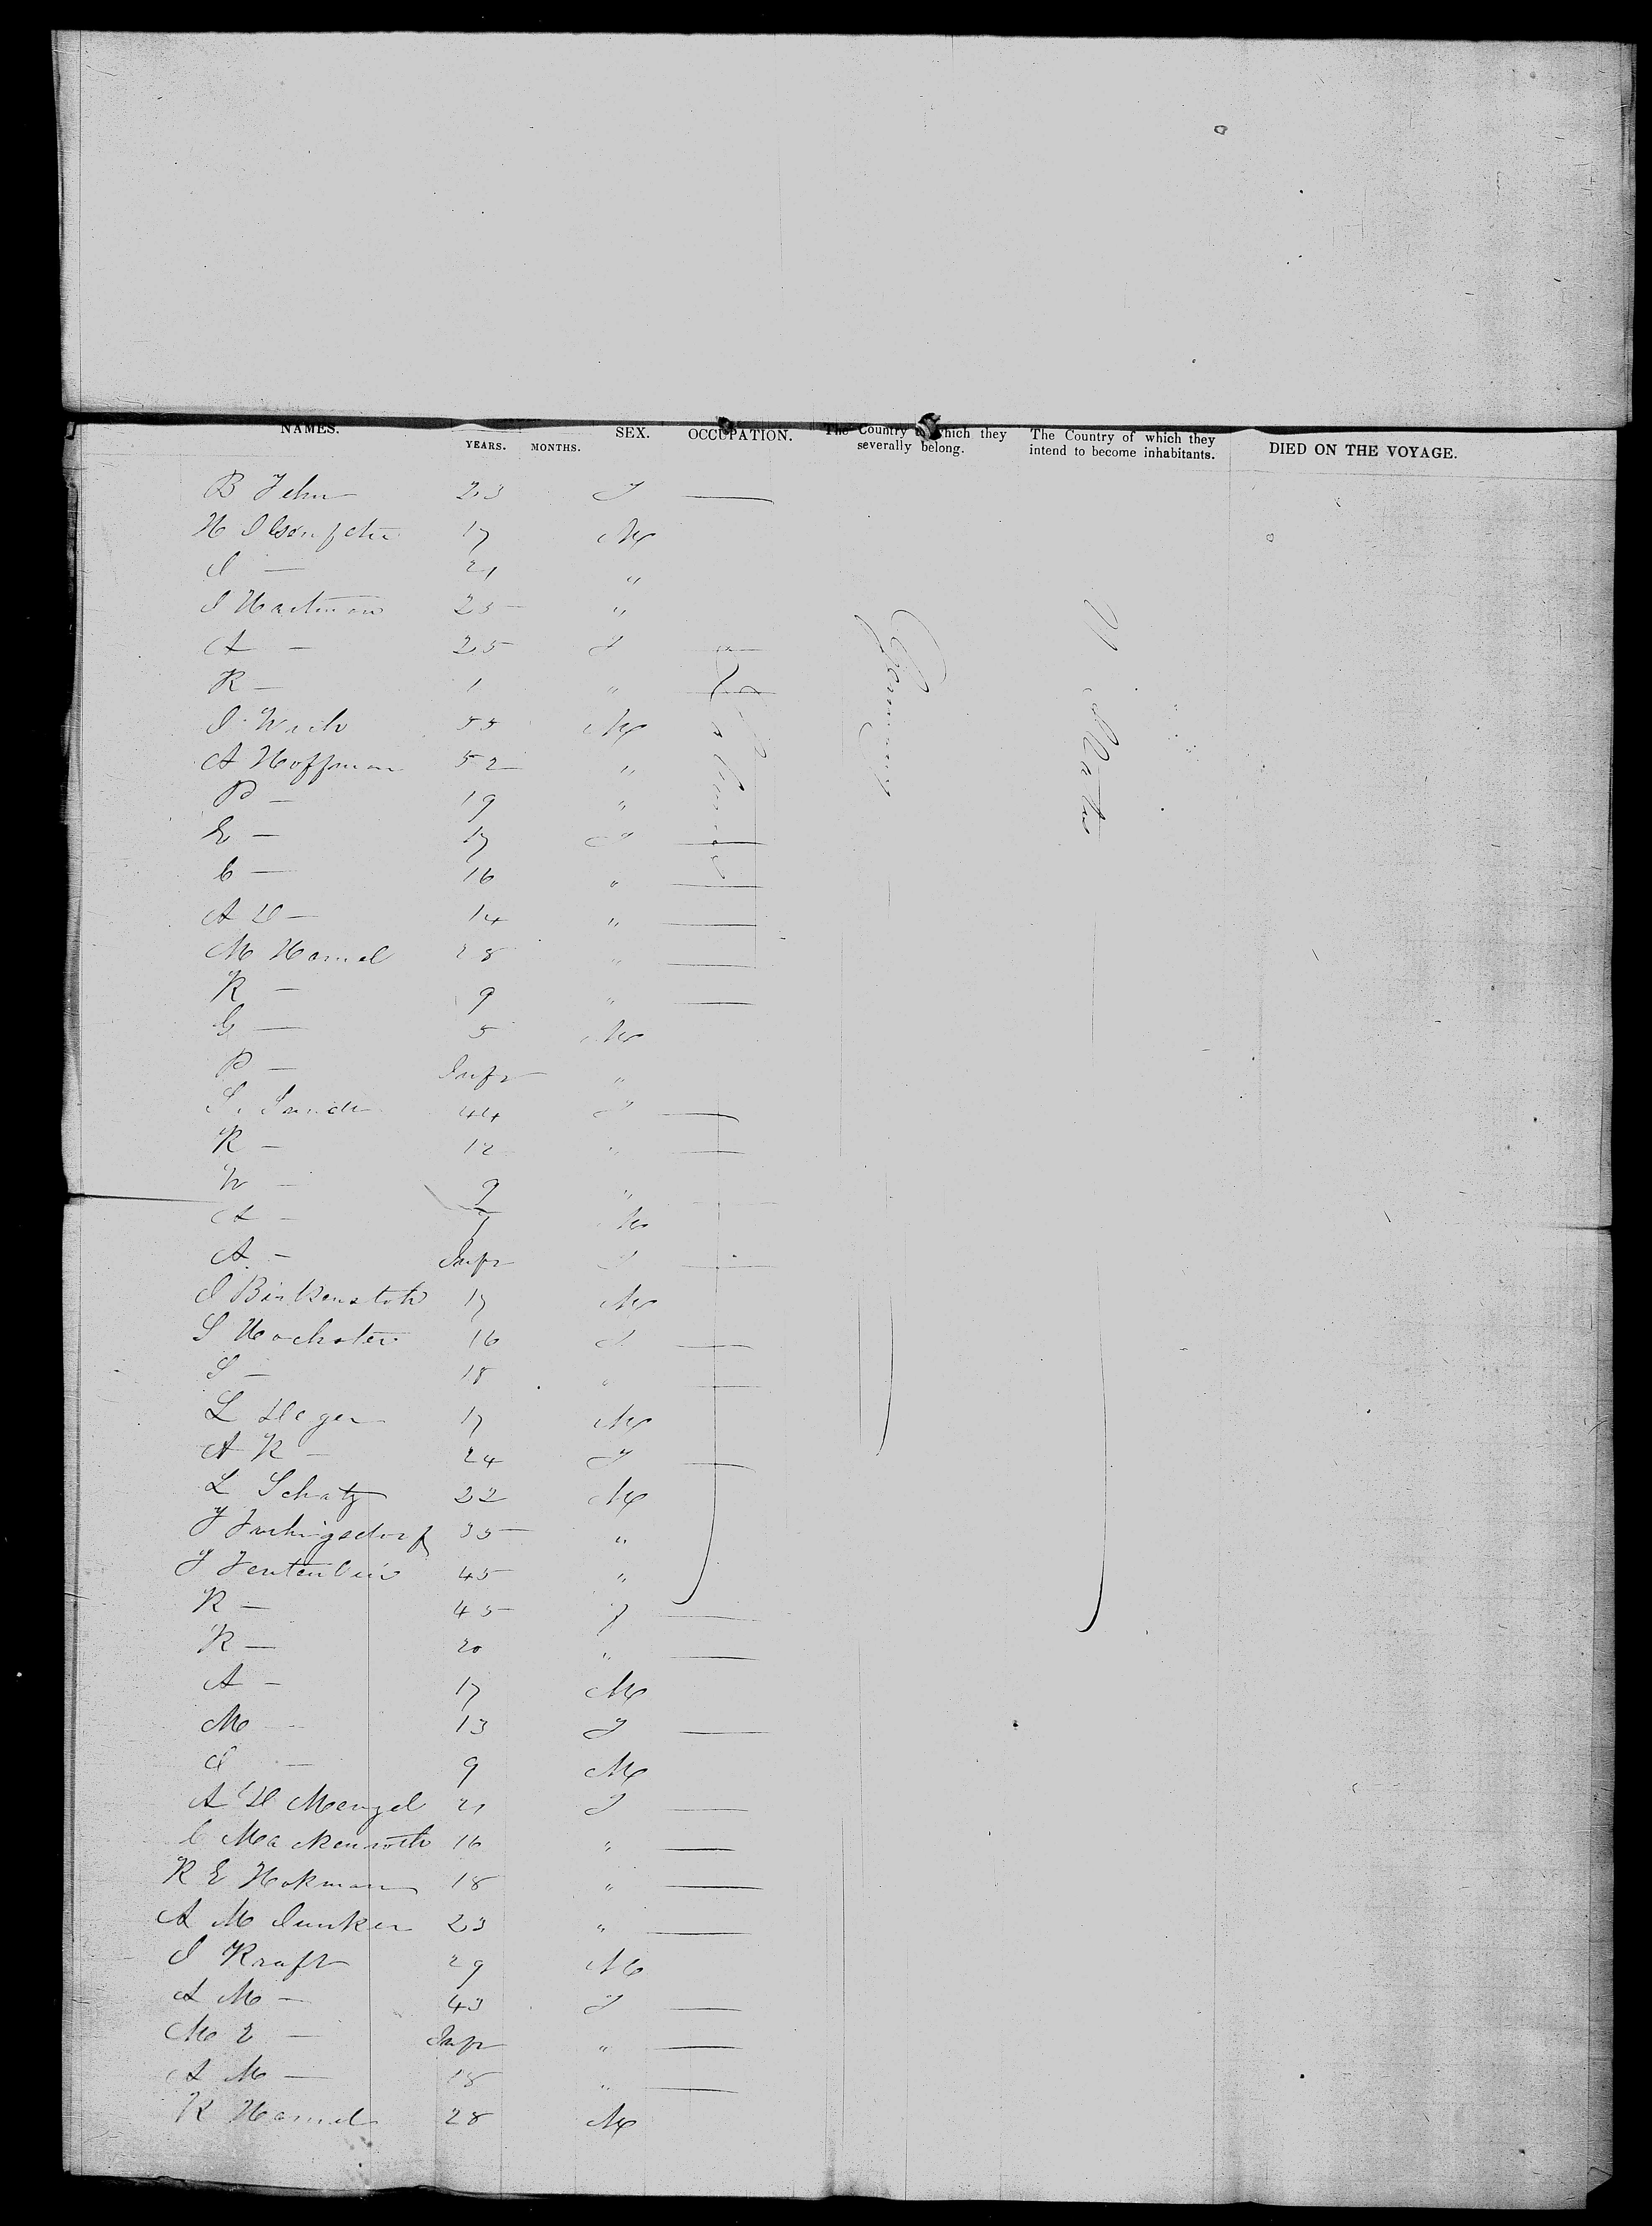 NAMES. YEARS. MONTHS. SEX. OCCUPATION. The Country to which they severally belong. The Country of which they intend to become inhabitants. DIED ON THE VOYAGE.
B 23 J —
H 17 M
J — 21 "
J Hartman 25 "
A — 25 J —
R — 1 " —
J 55 M
A Hoffman 52 "
P — 19 "
E — 17 J —
C — 16 " —
A E — 14 " —
M Hamel 28 " —
R — 9 " —
G — 5 M
P — Inft "
S. 44 J —
R — 12 " —
W — 9 " —
A — 7 M
A — Inft J —
J Birkenstok 17 M
S Hochster 16 J —
S — 18 " —
L Heger 17 M
A K — 24 J —
L Schatz 22 M
J 35 "
J 45 "
R — 45 J —
R — 20 " —
A — 17 M
M — 13 J —
J — 9 M
A E Mengel 21 J —
C Mackenroth 16 " —
R E Hokman 18 " —
A M Junker 23 " —
J Kraft 29 M
A M — 43 J —
M E — Inft " —
A M — 18 " —
K Hamel 28 M
Germany
U. States